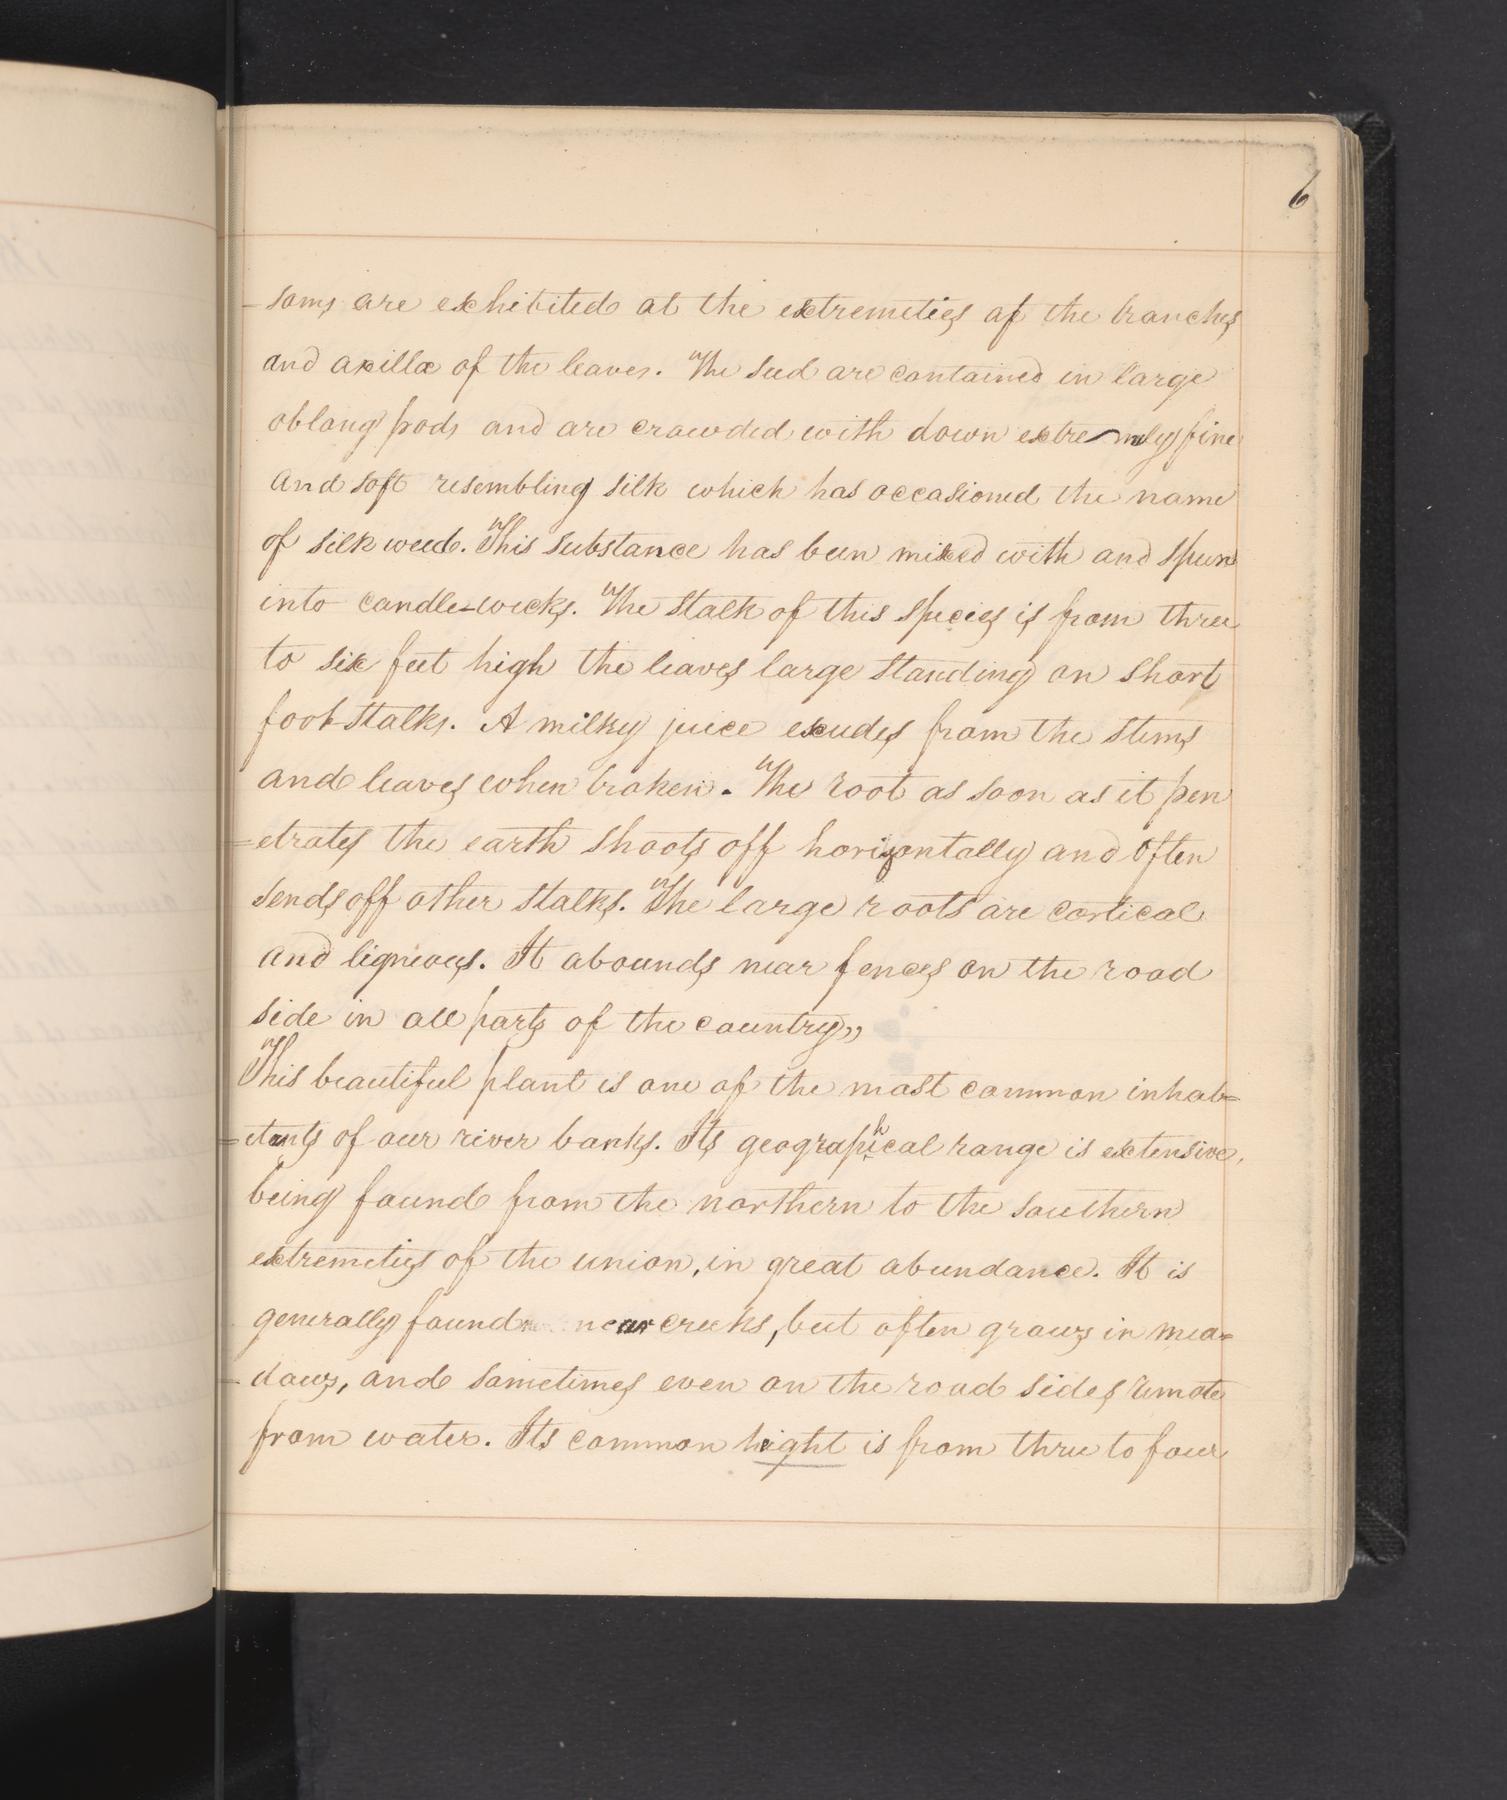 6
-soms are exhibited at the extremeties of the branches
and axillæ of the leaves. The seed are contained in large
oblong pods and are crowded with down extremely fine
and soft resembling silk which has occasioned the name
of silk weed. This substance has been mixed with and spun
into candle-wicks. The stalk of this species is from three
to six feet high the leaves large standing on short
foot stalks. A milky juice exudes from the stems
and leaves when broken. The root as soon as it pen
=etrates the earth shoots off horizontally and often
sends off other stalks. The large roots are cortical
and ligneous. It abounds near fences on the road
side in all parts of the country„
This beautiful plant is one of the most common inhab=
=itants of our river banks. Its geographical range is extensive,
being found from the northern to the southern
extremeties of the union, in great abundance. It is
generally found near creeks, but often grows in mea=
=dows, and sometimes even on the road sides remote
from water. Its common hight is from three to four